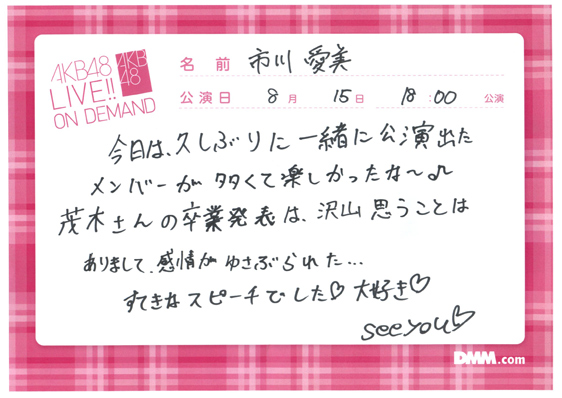 AKB48
LIVE!!
ON DEMAND
AKB
48
名前 市川愛美
公演日 8月 15日 18:00 公演
今日は、久しぶりに一緒に公演出た
メンバーが多くて楽しかったな〜♪
茂木さんの卒業発表は、沢山思うことは
ありまして、感情がゆさぶられた…
すてきなスピーチでした♡大好き♡
see you♡
DMM.com